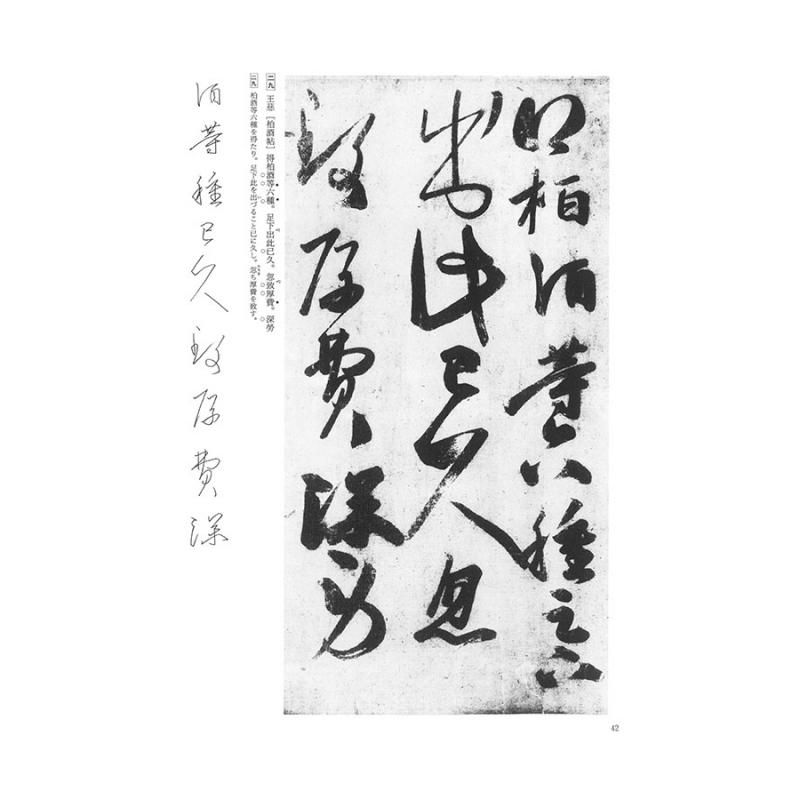 得柏酒等六種足下
出此已久忽
致厚費深労
二九 王慈［柏酒帖］ 得柏酒等六種。足下出此已久。忽致厚費。深労
二九 柏酒等六種を得たり。足下此を出づること已に久し。忽ち厚費を致す。
酒等種已久致厚費深
42